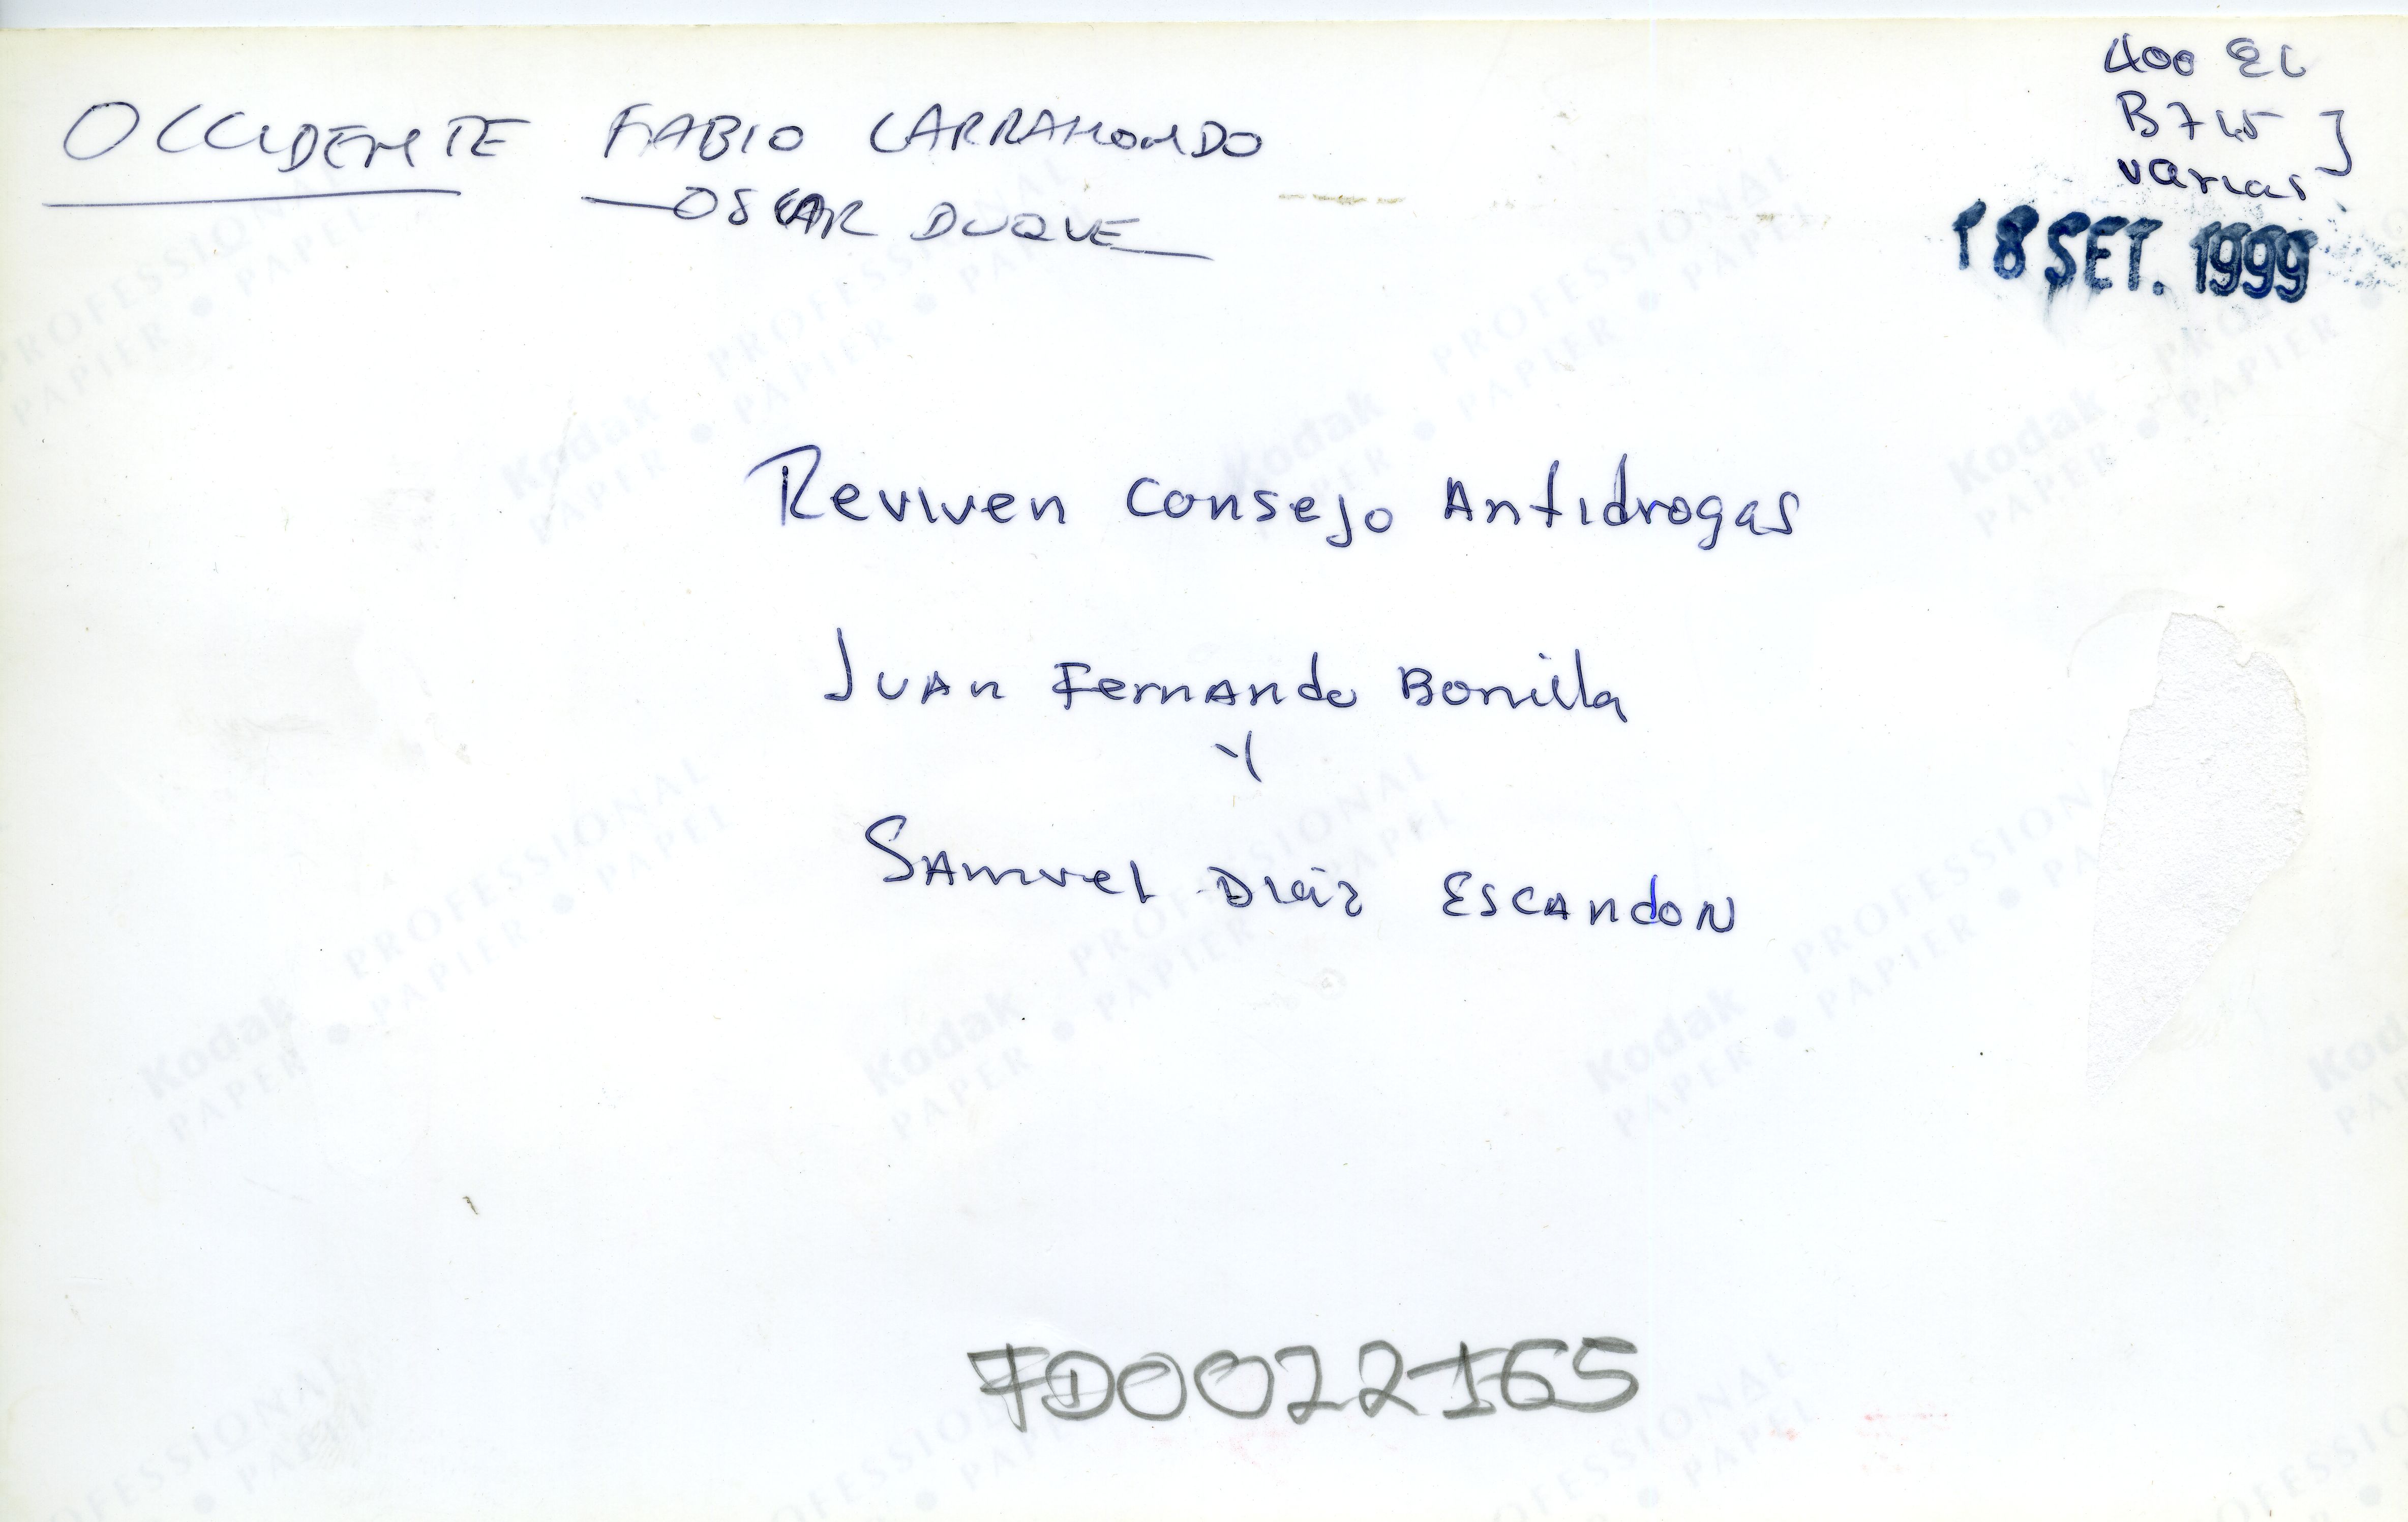 400 EL
B745
varias
OCCIDENTE FABIO LARRAHONDO
OSCAR DUQUE
18 SET. 1999
Reviven Consejo Antidrogas
Juan Fernando Bonilla
Y
Samuel Diaz Escandon
7D0022165
Kodak PROFESSIONAL
PAPER • PAPIER • PAPEL